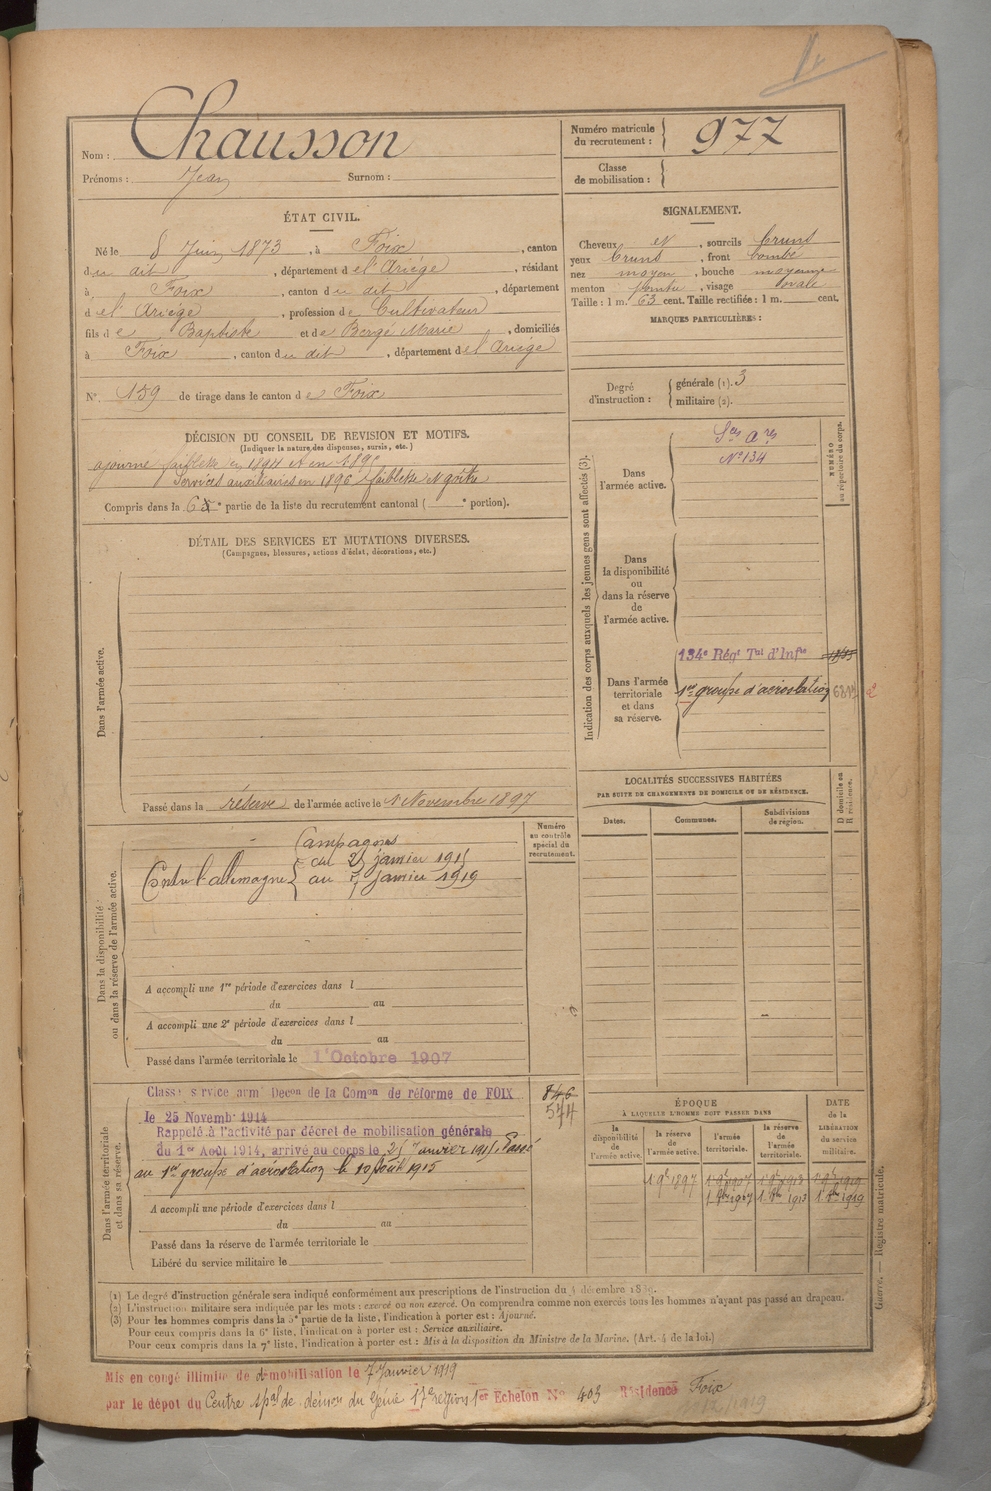 Nom : Chausson
Prénoms : Jean Surnom :
Numéro matricule du recrutement : 977
Classe de mobilisation :
ÉTAT CIVIL.
Né le 8 Juin 1873, à Foix, canton
du dit, département de l'Ariège, résidant
à Foix, canton du dit, département
de l'Ariège, profession de Cultivateur
fils de Baptiste et de Bergé Marie, domiciliés
à Foix, canton du dit, département de l'Ariège
N° 159 de tirage dans le canton de Foix
SIGNALEMENT.
Cheveux et, sourcils bruns
yeux bruns, front bombé
nez moyen, bouche moyenne
menton pointu, visage ovale
Taille : 1 m. 63 cent. Taille rectifiée : 1 m. cent.
MARQUES PARTICULIÈRES :
Degré d'instruction :
générale (1). 3
militaire (2).
DÉCISION DU CONSEIL DE REVISION ET MOTIFS.
(Indiquer la nature des dispenses, sursis, etc.)
ajourné faiblesse en 1894 et en 1895
Services auxiliaires en 1896 faiblesse et goitre
Compris dans la 6e partie de la liste du recrutement cantonal ( e portion).
DÉTAIL DES SERVICES ET MUTATIONS DIVERSES.
(Campagnes, blessures, actions d'éclat, décorations, etc.)
Dans l'armée active.
Passé dans la réserve de l'armée active le 1 Novembre 1897
Indication des corps auxquels les jeunes gens sont affectés (3).
NUMÉRO au répertoire du corps.
Dans l'armée active.
Ses Ares
N° 134
Dans la disponibilité ou dans la réserve de l'armée active.
Dans l'armée territoriale et dans sa réserve.
134e Régt Tal d'Infie
1er groupe d'aérostation
LOCALITÉS SUCCESSIVES HABITÉES
PAR SUITE DE CHANGEMENTS DE DOMICILE OU DE RÉSIDENCE.
D domicile ou R résidence.
Dates.
Communes.
Subdivisions de région.
Numéro au contrôle spécial du recrutement.
Dans la disponibilité ou dans la réserve de l'armée active.
Campagnes
Contre l'allemagne
du 25 janvier 1915
au 7 janvier 1919
A accompli une 1re période d'exercices dans l
du au
A accompli une 2e période d'exercices dans l
du au
Passé dans l'armée territoriale le 1er Octobre 1907
Dans l'armée territoriale et dans sa réserve.
Classé service armé Decon de la Comon de réforme de FOIX
le 25 Novembre 1914
Rappelé à l'activité par décret de mobilisation générale
du 1er Août 1914, arrivé au corps le 25 Janvier 1915. Passé
au 1er groupe d'aérostation le 10 Août 1915
846
544
A accompli une période d'exercices dans l
du au
Passé dans la réserve de l'armée territoriale le
Libéré du service militaire le
ÉPOQUE
À LAQUELLE L'HOMME DOIT PASSER DANS
la disponibilité de l'armée active.
la réserve de l'armée active.
l'armée territoriale.
la réserve de l'armée territoriale.
DATE de la LIBÉRATION du service militaire.
1 9bre 1897 1 9bre 1907 1 9bre 1913 1 9bre 1919
1. 8bre 1907 1. 8bre 1913 1. 8bre 1919
(1) Le degré d'instruction générale sera indiqué conformément aux prescriptions de l'instruction du 4 décembre 1889.
(2) L'instruction militaire sera indiquée par les mots : exercé ou non exercé. On comprendra comme non exercés tous les hommes n'ayant pas passé au drapeau.
(3) Pour les hommes compris dans la 5e partie de la liste, l'indication à porter est : Ajourné.
Pour ceux compris dans la 6e liste, l'indication à porter est : Service auxiliaire.
Pour ceux compris dans la 7e liste, l'indication à porter est : Mis à la disposition du Ministre de la Marine. (Art. 4 de la loi.)
Guerre. — Registre matricule.
Mis en congé illimité de démobilisation le 7 Janvier 1919
par le dépot du Centre spal de démon du Génie 17e région 1er Echelon N° 405 Résidence Foix